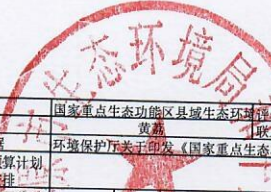 生态环境局
国家重点生态功能区县域生态环境
黄荔 联
据 环境保护厅关于印发《国家重点生态
算计划
排